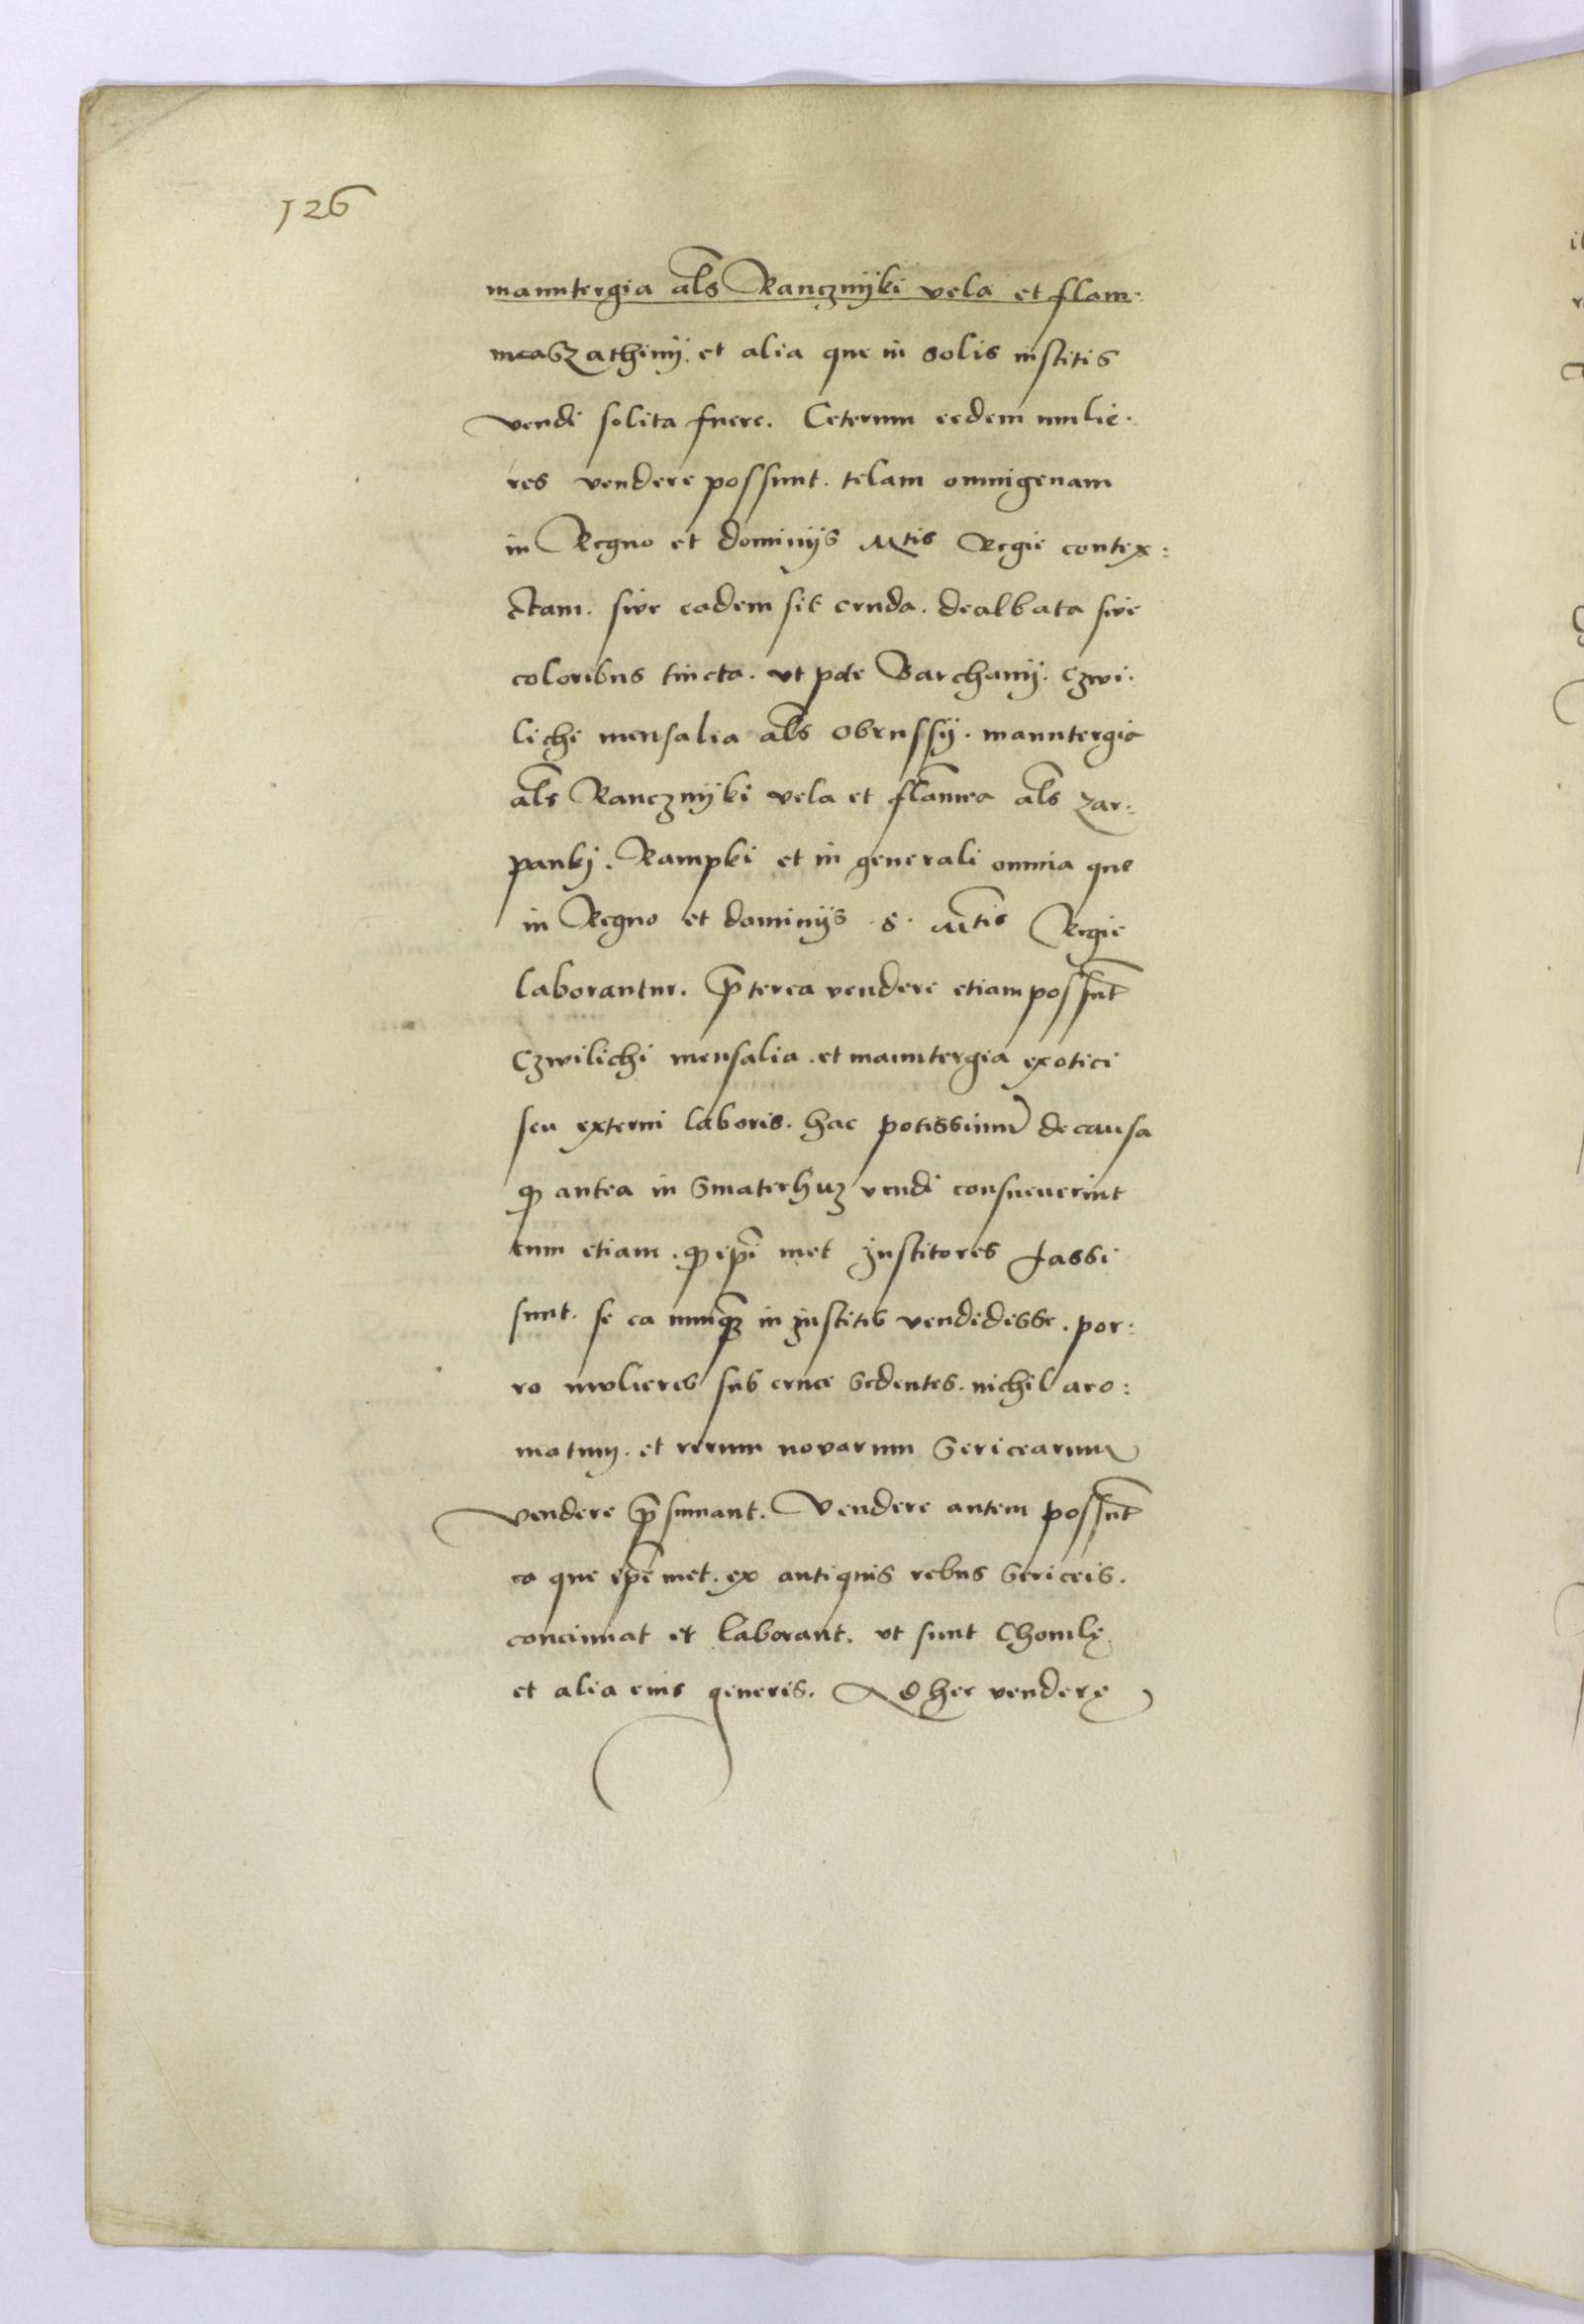 126
manutergia als Rancznyki vela et flam:
mea Szathiny. et alia que in solis institis
vendi solita fuere. Ceterum eedem mulie:
res vendere possunt. telam omnigenam
in Regno et dominijs Mtis Regie contex:
ctam. sive eadem sit cruda. dealbata sive
coloribus tincta. vt pote Barchany. Czwi:
lichi mensalia als obrussy. manutergia
als Rancznyki vela et flamea als zar:
pankj. Rampki et in generali omnia que
in Regno et dominijs S. Mtis Regie
laborantur. Preterea vendere etiam possunt
Czwilichi mensalia. et manutergia exotici
seu externi laboris. hac potissimum de causa
quod antea in Smaterhuz vendi consueuerint
tum etiam. quod ipsi met Institores fassi
sunt. se ea nunquam in Institis vendidisse. por:
ro mulieres sub cruce sedentes. nichil aro:
matum. et rerum novarum Sericearum
vendere presumant. Vendere autem possunt
ea que ipse met. ex antiquis rebus Sericeis.
concinnat et laborant. vt sunt Chomly
et alia eius generis. Ad hec vendere